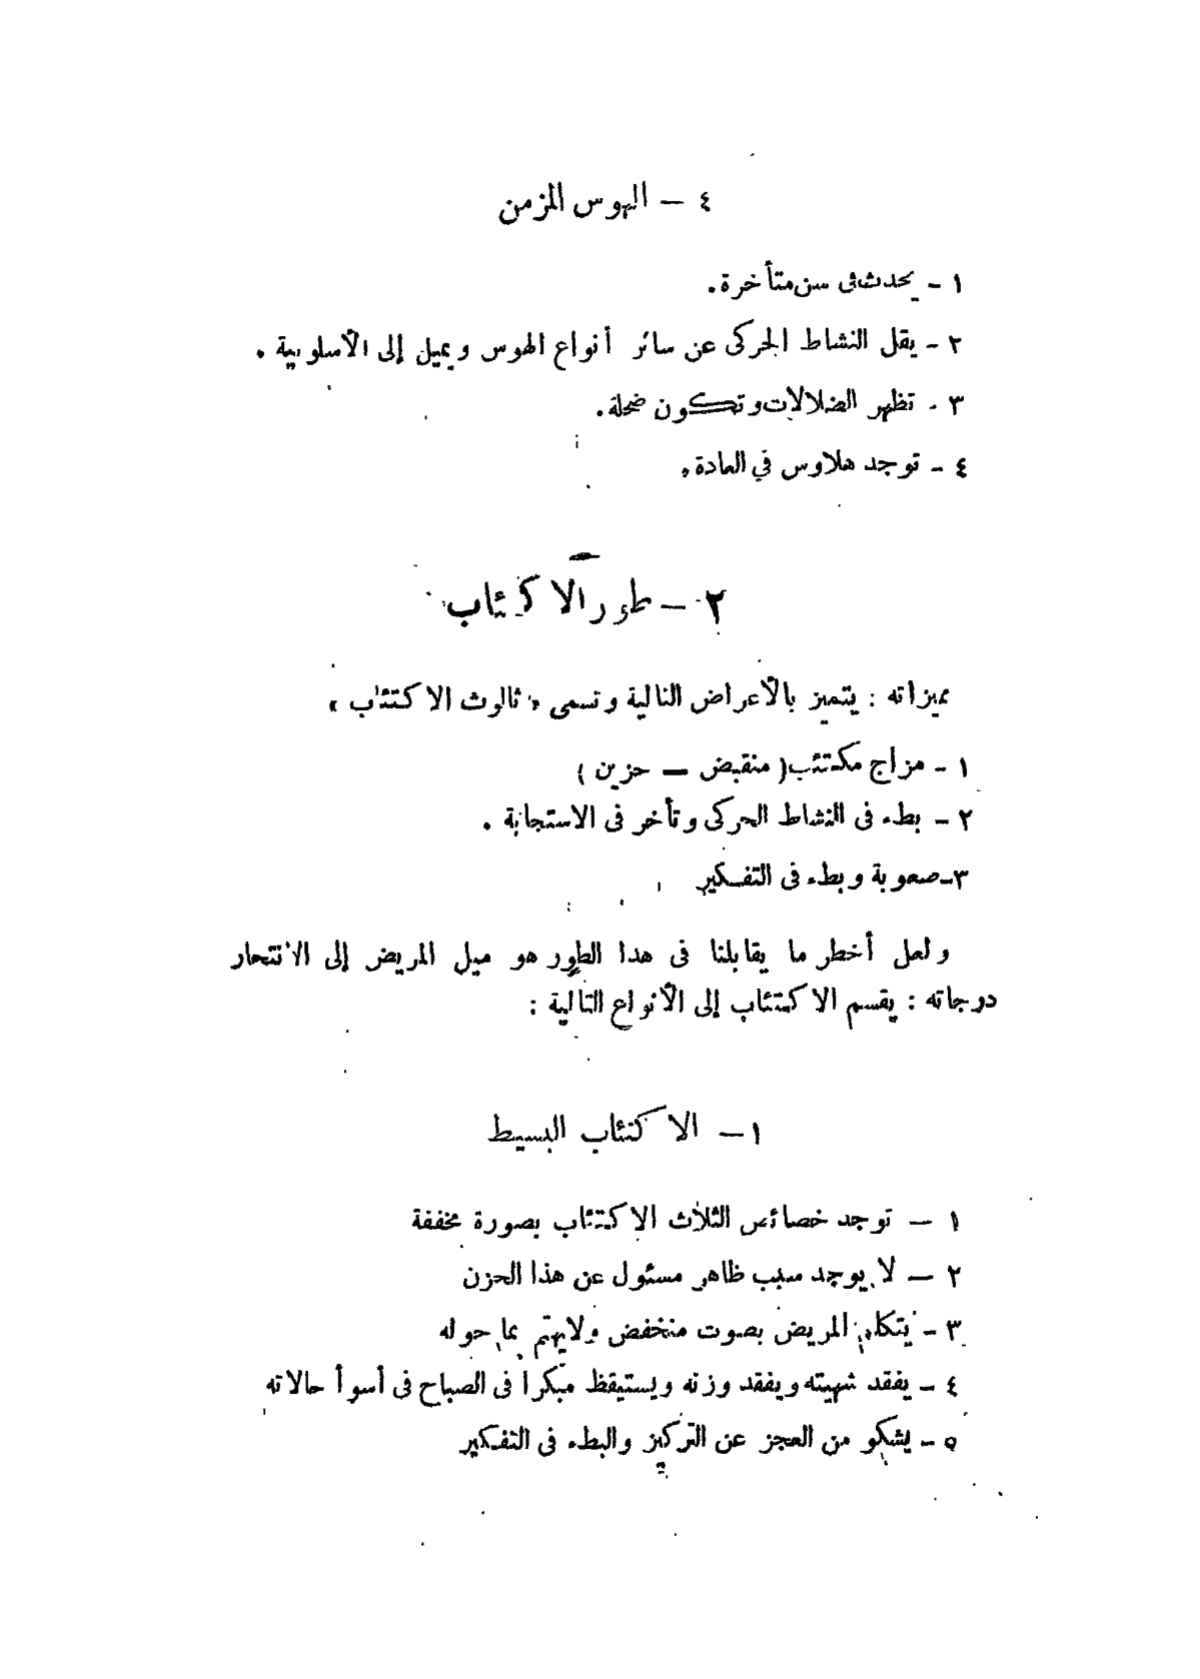 ٤ — الهوس المزمن
١ - يحدث فى سن متأخرة .
٢ - يقل النشاط الحركى عن سائر أنواع الهوس ويميل إلى الأسلوبية .
٣ - تظهر الضلالات وتكون ضحلة .
٤ - توجد هلاوس في العادة .
٢ — طور الاكتئاب
مميزاته : يتميز بالأعراض التالية وتسمى « ثالوث الاكتئاب »
١ - مزاج مكتئب ( منقبض — حزين )
٢ - بطء فى النشاط الحركى وتأخر فى الاستجابة .
٣ - صعوبة وبطء فى التفكير
ولعل أخطر ما يقابلنا فى هذا الطور هو ميل المريض إلى الانتحار
درجاته : يقسم الاكتئاب إلى الأنواع التالية :
١ — الاكتئاب البسيط
١ — توجد خصائص الثلاث الاكتئاب بصورة مخففة
٢ — لا يوجد سبب ظاهر مسئول عن هذا الحزن
٣ - يتكلم المريض بصوت منخفض ولا يهتم بما حوله
٤ - يفقد شهيته ويفقد وزنه ويستيقظ مبكرا فى الصباح فى أسوأ حالاته
٥ - يشكو من العجز عن التركيز والبطء فى التفكير